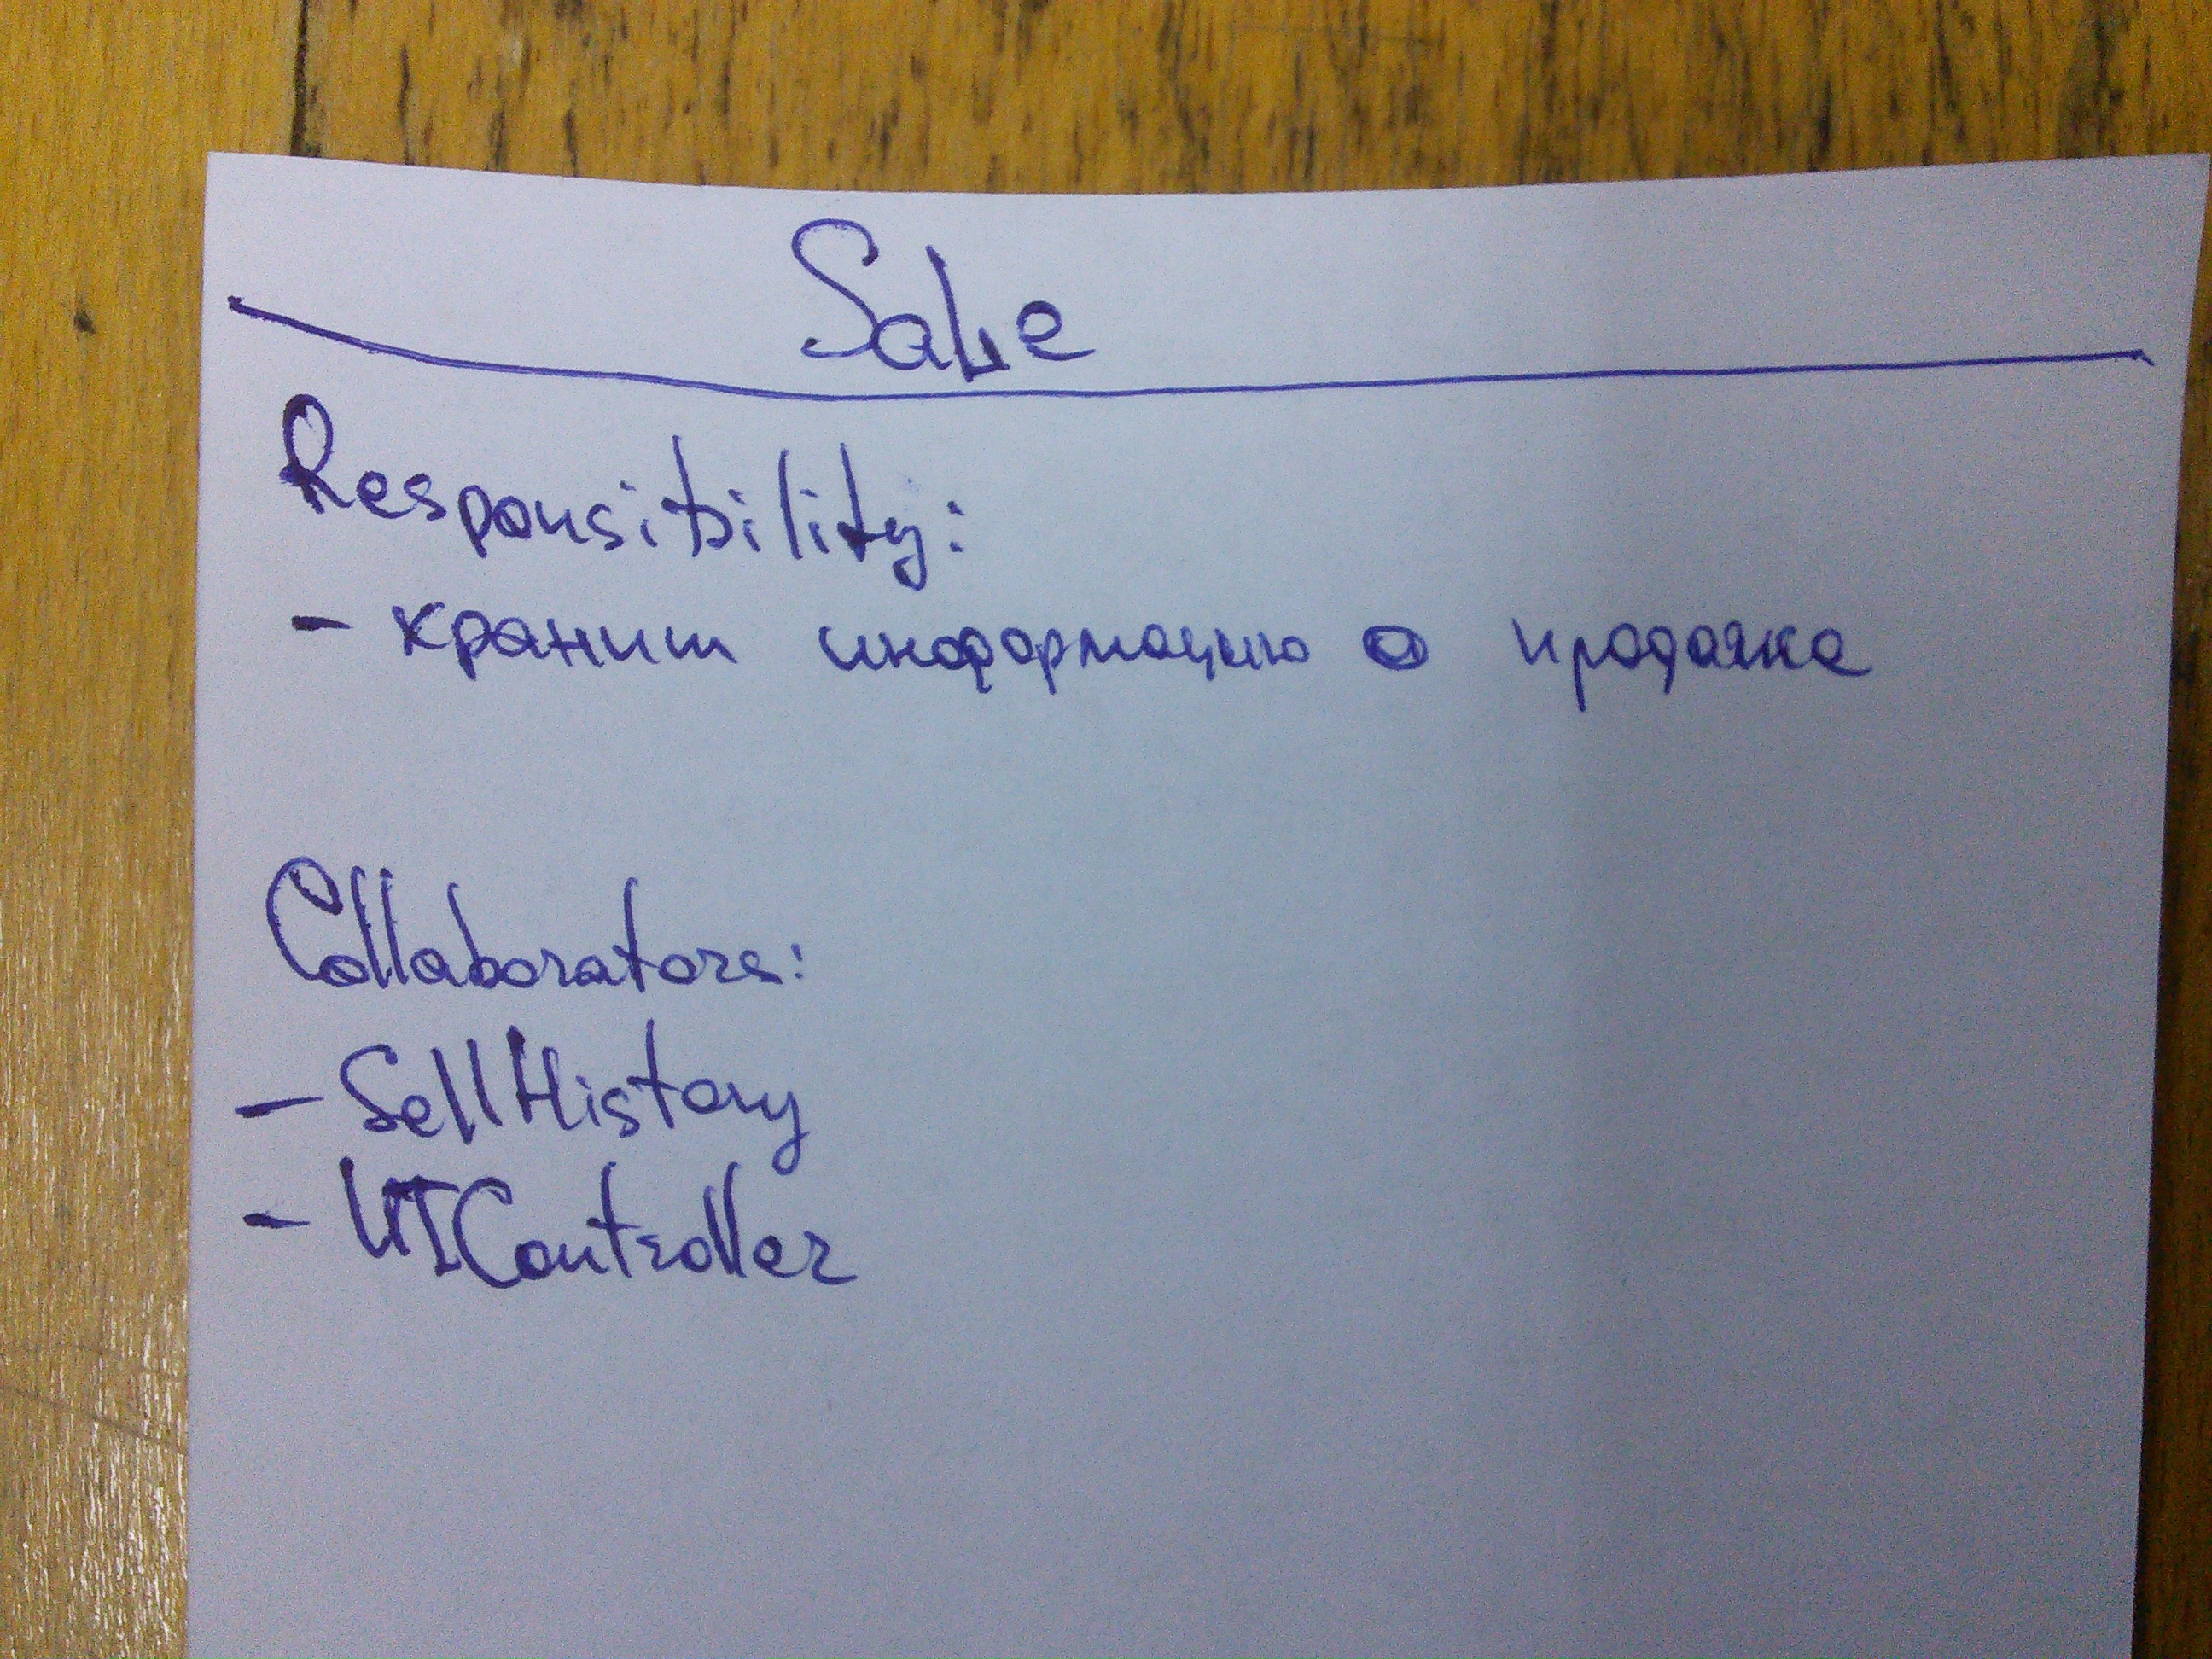 Sale
Responsibility:
- хранит информацию о продаже
Collaborators:
- SellHistory
- UIController